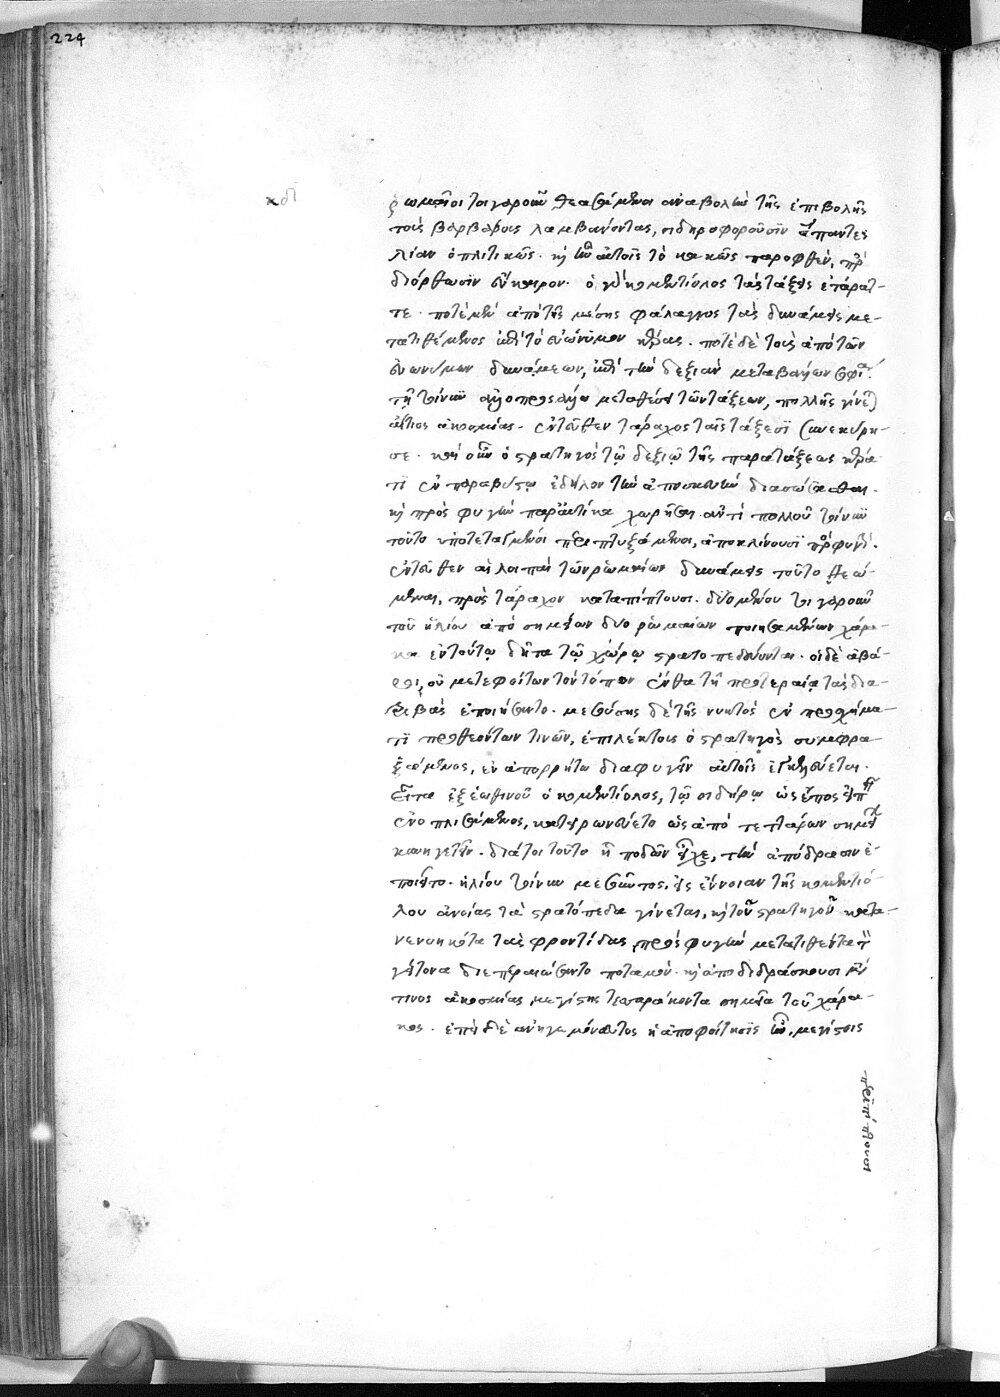 224
κδ΄
ῥωμαῖοι τοιγαροῦν θεασάμενοι ἀναβολὴν τῆς ἐπιβολῆς
τοὺς βαρβάρους λαμβάνοντας, σιδηροφοροῦσιν ἅπαντες
λίαν ὁπλιτικῶς. καὶ ἦν αὐτοῖς τὸ κακῶς παροφθὲν, πρὸ
διόρθωσιν εὔκαιρον. ὁ γοῦν κομεντίολος τὰς τάξεις ἐτάρατ-
τε. ποτὲ μὲν ἀπὸ τῆς μέσης φάλαγγος τὰς δυνάμεις με-
τατιθέμενος ἐπὶ τὸ εὐώνυμον κέρας. ποτὲ δὲ τοὺς ἀπὸ τῶν
εὐωνύμων δυνάμεων, ἐπὶ τὴν δεξιὰν μεταβαίνων
τῇ τοίνυν ἄλλοπροσάλλω μεταθέσει τῶν τάξεων, πολλῆς γίνεται
αἴτιος ἀκοσμίας. ἐντεῦθεν τάραχος ταῖς τάξεσι συνεκύρη-
σε. καὶ οὖν ὁ στρατηγὸς τῷ δεξιῷ τῆς παρατάξεως κέρα-
τι ἐν παραβύστω ἐδήλου τὴν ἀποσκευὴν διασώσασθαι.
καὶ πρὸς φυγὴν παραυτίκα χωρῆσαι. ἀντὶ πολλοῦ τοίνυν
τοῦτο ὑποτεταγμένοι περιπτυξάμενοι, ἀποκλίνουσι πρὸς φυγήν.
ἐντεῦθεν αἱ λοιπαὶ τῶν ῥωμαίων δυνάμεις τοῦτο θεώ-
μεναι, πρὸς τάραχον καταπίπτουσι. δυομένου τοιγαροῦν
τοῦ ἡλίου ἀπὸ σημείων δύο ῥωμαίων ποιησαμένων χάρα-
κα ἐν τούτῳ δῆτα τῷ χώρῳ στρατοπεδεύονται. οἱ δὲ ἀβά-
ροι, οὐ μετεφοίτων τὸν τόπον ἔνθα τῇ προτεραίᾳ τὰς δια-
τριβὰς ἐποιήσαντο. μεσούσης δὲ τῆς νυκτὸς ἐν προσχήμα-
τι προθεόντων τινῶν, ἐπιλέκτοις ὁ στρατηγὸς συμφρα-
ξάμενος, ἐν ἀπορρήτω διαφυγεῖν αὐτοῖς ἐγκελεύεται.
εἶτα ἐξ ἑωθινοῦ ὁ κομεντίολος, τῷ σιδήρῳ ὡς ἔπος εἰπεῖν
ἐνοπλισάμενος, κατειρωνεύετο ὡς ἀπὸ τεττάρων σημείων
κυνηγετεῖν. διάτοι τοῦτο ᾗ ποδῶν εἶχε, τὴν ἀπόδρασιν ἐ-
ποιεῖτο. ἡλίου τοίνυν μεσοῦντος, εἰς ἔννοιαν τῆς κομεντιό-
λου ἀνοίας τὰ στρατόπεδα γίνεται, καὶ τοῦ στρατηγοῦ κατα-
νενοηκότα τὰς φροντίδας, πρὸς φυγὴν μετατιθένται τὸν
γείτονα διεπεραιώσαντο ποταμόν. καὶ ἀποδιδράσκουσι μετά
τινος ἀκοσμίας μεγίστης τεσσαράκοντα σημεῖα τοῦ χάρα-
κος. ἐπεὶ δὲ ἀνηγεμόνευτος ἡ ἀποφοίτησις ἦν, μεγίστοις